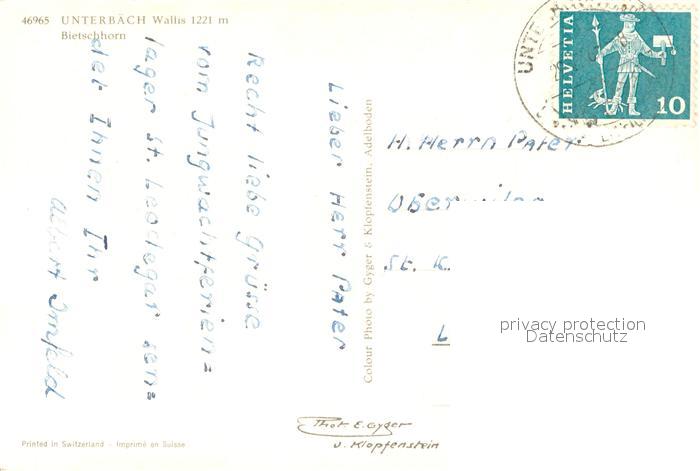 46965 UNTERBÄCH Wallis 1221 m
Bietschhorn
Lieber Herr Pater
Recht liebe Grüsse
vom Jungwachtferien=
lager St. Leodegar sen=
det Ihnen Ihr
Albert Imfeld
Colour Photo by Gyger & Klopfenstein, Adelboden
HELVETIA
10
UNTE
H. Herrn Pater
St. K.
L
privacy protection
Datenschutz
Phot E. Gyger
u. Klopfenstein
Printed in Switzerland - Imprimé en Suisse